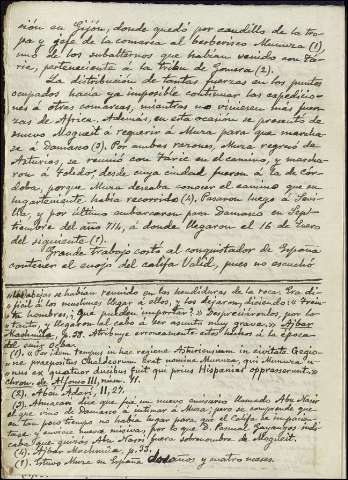 ción en Gijón, donde quedó por caudillo de la tro-
pa y gefe de la comarca al berberisco Munuza (1),
uno de los subalternos que habían venido con Tá-
ric, perteneciente á la tribu de Gomera (2).
La distribución de tantas fuerzas en los puntos
ocupados hacía ya imposible continuar las expedicio-
nes á otras comarcas, mientras no viniesen más fuer-
zas de Africa. Además, en esta ocasión se presentó de
nuevo Mogueit á requerir á Muza para que marcha-
se á Damasco (3). Por ambas razones, Muza regresó de
Asturias, se reunió con Táric en el camino, y marcha-
ron á Toledo, desde cuya ciudad fueron á la de Cór-
doba, porque Muza deseaba conocer el camino que su
lugarteniente había recorrido (4). Pasaron luego á Sevi-
lla, y por último embarcaron para Damasco en Sep-
tiembre del año 714, á donde llegaron el 16 de Enero
del siguiente (5).
Grande trabajo costó al conquistador de España
contener el enojo del califa Valid, pues no escuchó
abejas se habían reunido en las hendiduras de la roca. Era di-
fícil á los muslimes llegar á ellos, y los dejaron, diciendo: «Trein-
ta hombres, ¿qué pueden importar?» Despreciáronlos, por lo
tanto, y llegaron al cabo á ser asunto muy grave.» Ajbar
Machmuâ, p. 38. Atribuye erroneamente estos hechos á la época
del emir Ocba.
(1). «Per idem tempus in hac regione Asturiensium in civitate Gegio-
ne prepositus Chaldeorum erat nomine Munuza, qui Munuza
unus ex quatuor ducibus fuit qui prius Hispanias oppresserunt.»
Chron. de Alfonso III, núm. 11.
(2). Aben Adari, II, 27.
(3). Almacari dice que fué un nuevo emisario llamado Abu Nasir
el que vino de Damasco á intimar á Muza; pero se comprende que
en tan poco tiempo no había lugar para que el Califa se impacien-
tase y enviase nueva misiva; por lo que D. Pascual Gayangos indi-
caba que quizás Abu Nasir fuera sobrenombre de Mogueit.
(4). Ajbar Machmuâ, p. 33.
(5). Estuvo Muza en España dos años y cuatro meses.